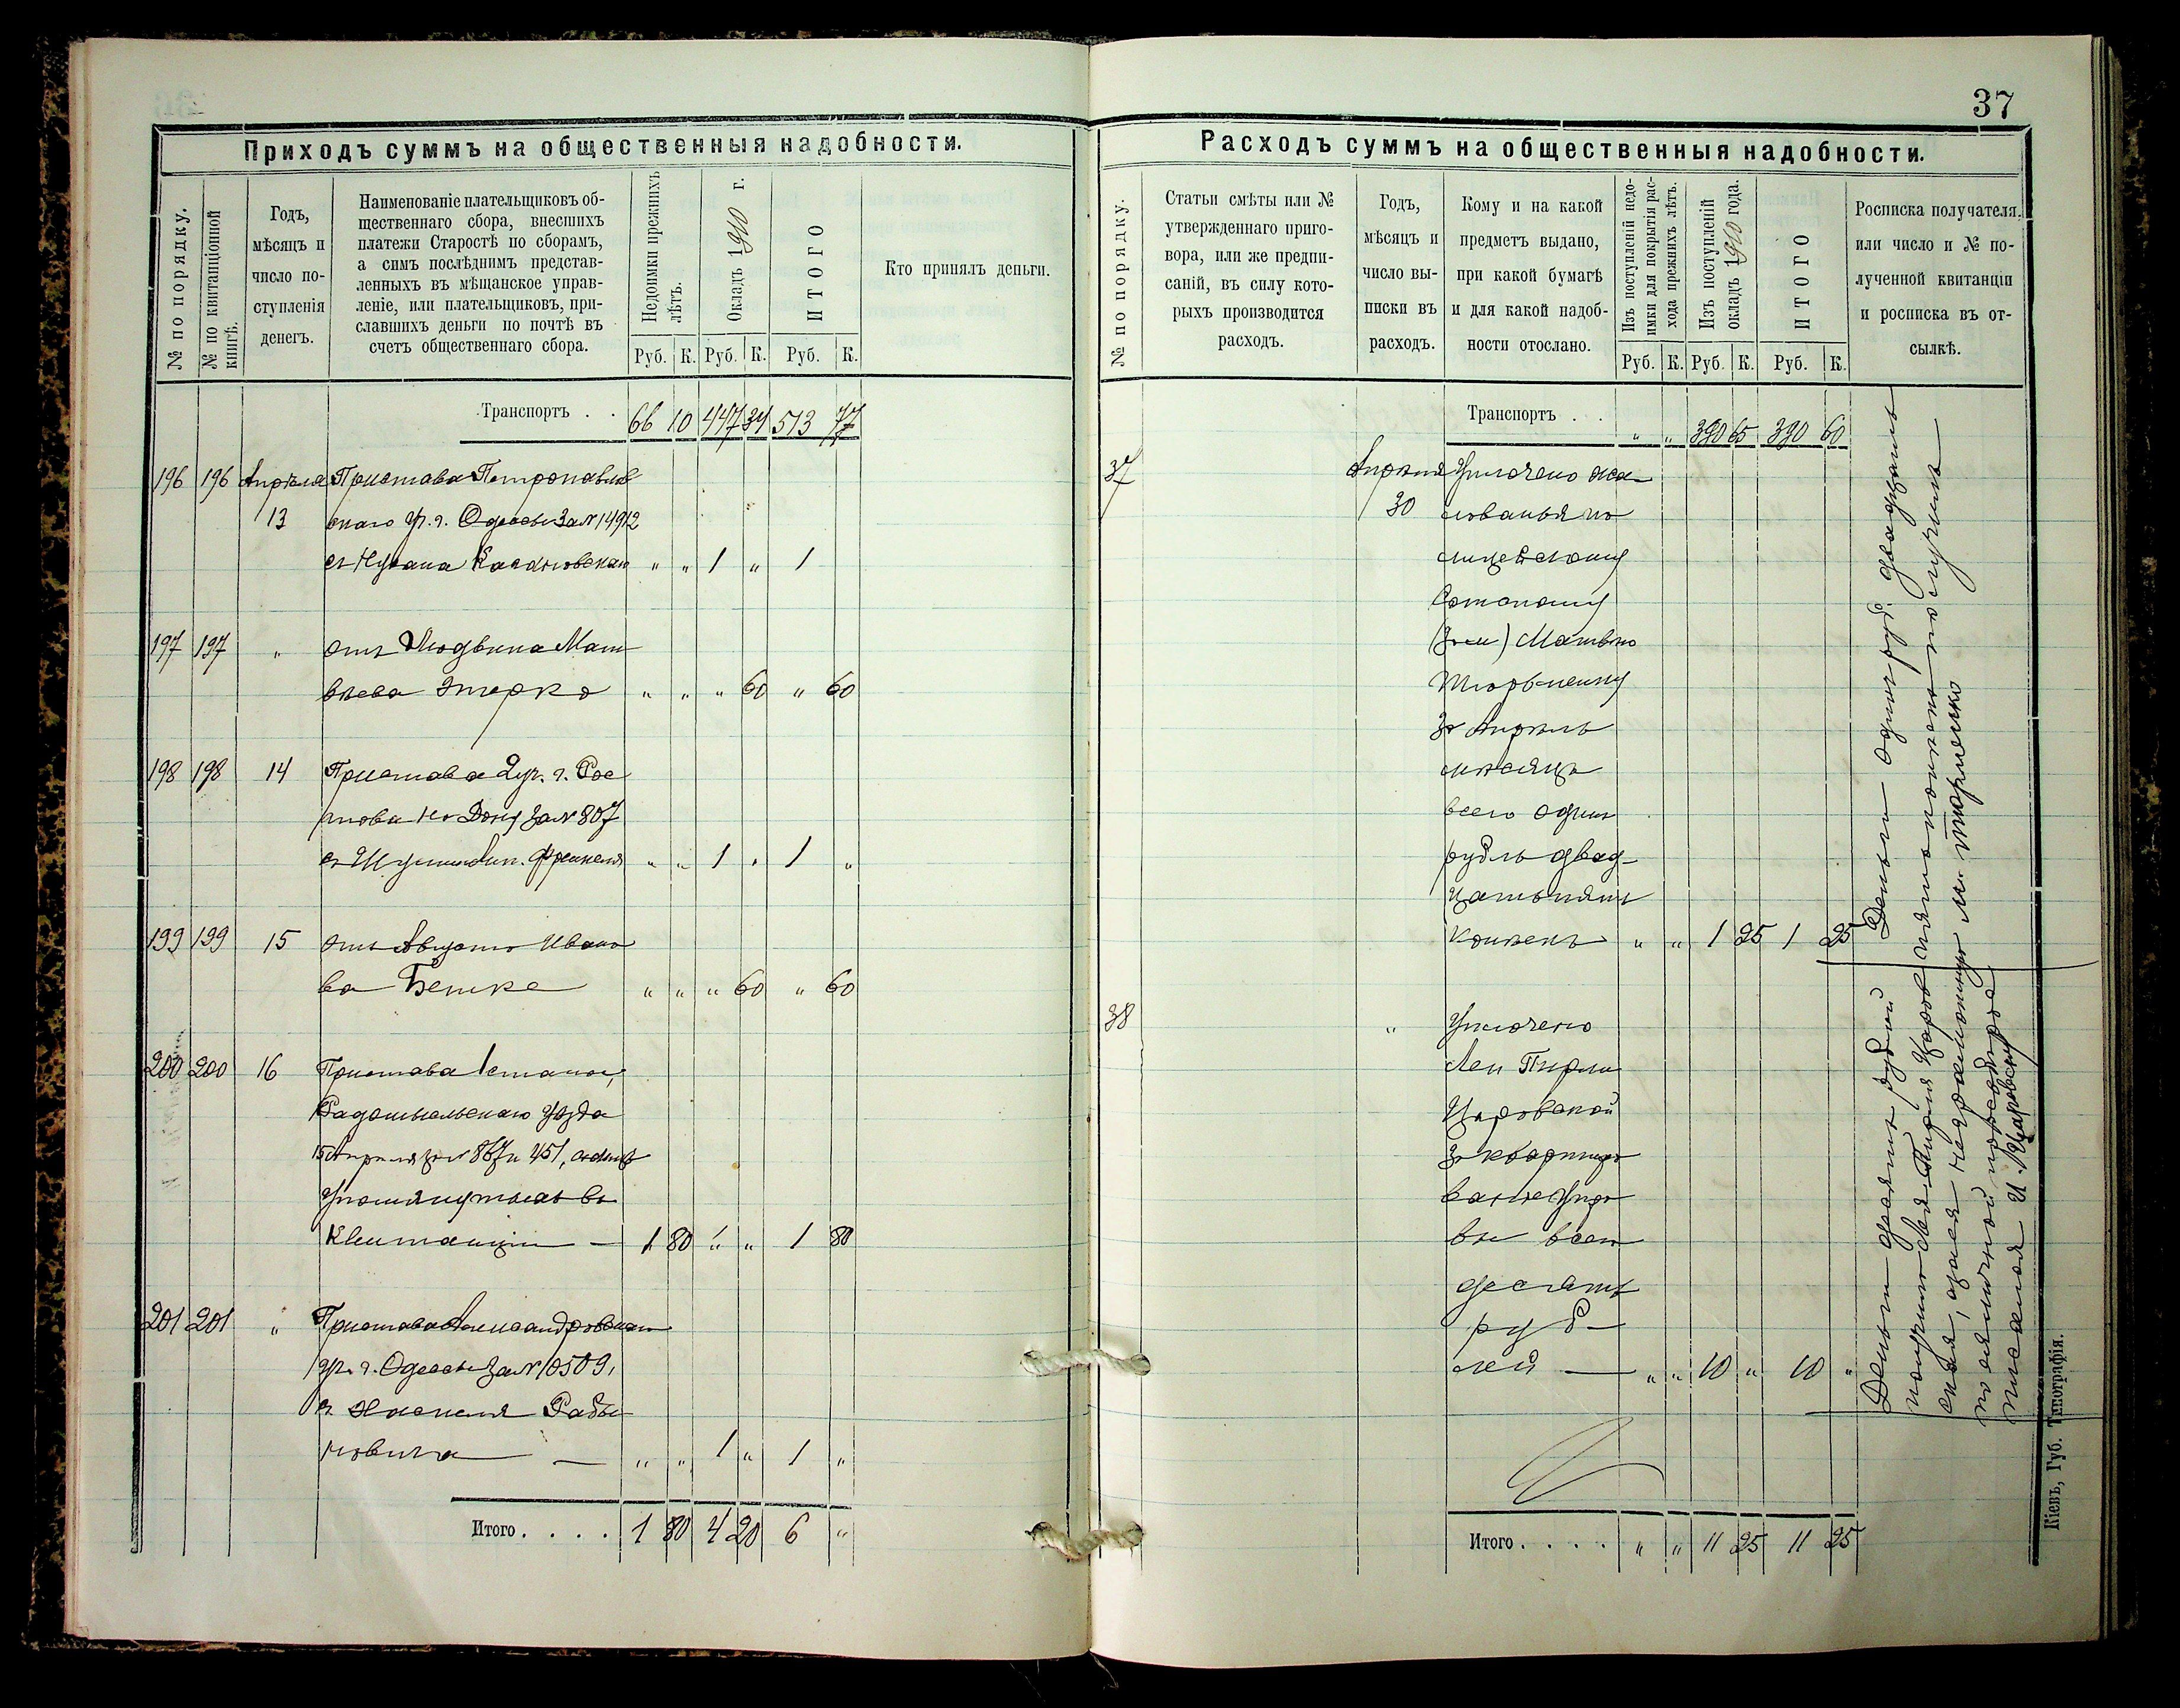 37
Приходъ суммъ на общественныя надобности.
№ по порядку.
№ по квитанціонной книгѣ.
Годъ,
мѣсяцъ и
число по-
ступленія
денегъ.
Наименованіе плательщиковъ об-
щественнаго сбора, внесшихъ
платежи Старостѣ по сборамъ,
а симъ послѣднимъ представ-
ленныхъ въ мѣщанское управ-
леніе, или плательщиковъ, при-
славшихъ деньги по почтѣ въ
счетъ общественнаго сбора.
Недоимки прежнихъ
лѣтъ.
Окладъ 1910 г.
ИТОГО
Кто принялъ деньги.
Руб. К. Руб. К. Руб. К.
Транспортъ . . 66 10 447 34 513 77
196 196 Апрѣля Пристава Петропавлов
13 скаго уч. г. Одессы за № 14912
съ " " 1 " 1
197 197 " отъ Людвика Мат
вѣева " " " 60 " 60
198 198 14 Пристава 2 уч. г. Рос
това на Дону за № 807
съ Френкеля " " 1 " 1 "
199 199 15 отъ Августа Ивано
ва Бешке " " " 60 " 60
200 200 16 Пристава 1 стана,
Радомысльскаго уѣзда
15 Апрѣля за № 867 и 451,
упомянутыхъ въ
Квитанціи — 1 80 " " 1 80
201 201 " Пристава Александровскаго
уч. г. Одессы за № 10509,
съ Хаскеля Раби
новича — " " 1 " 1 "
Итого. . . . 1 80 4 20 6 "
Расходъ суммъ на общественныя надобности.
№ по порядку.
Статьи смѣты или №
утвержденнаго приго-
вора, или же предпи-
саній, въ силу кото-
рыхъ производится
расходъ.
Годъ,
мѣсяцъ и
число вы-
писки въ
расходъ.
Кому и на какой
предметъ выдано,
при какой бумагѣ
и для какой надоб-
ности отослано.
Изъ поступленій недо-
имки для покрытія рас-
хода прежнихъ лѣтъ.
Изъ поступленій
окладъ 1910 года.
ИТОГО
Росписка получателя,
или число и № по-
лученной квитанціи
и росписка въ от-
сылкѣ.
Руб. К. Руб. К. Руб. К.
Транспортъ . . " " 390 65 390 60
37 Апрѣля Уплочено жа-
30 лованья по
лицейскому
Сотскому
Матвѣю
за Апрѣль
мѣсяцъ
всего одинъ
рубль двад-
цать пять
копѣекъ " " 1 25 1 25
Деньги одинъ руб. двадцать
пять копѣекъ получилъ
38 " Уплочено
Леи Пирли
Царовской
за квартиру
Упра
вы всего
десять
руб-
лей — " " 10 " 10 "
Деньги десять рублей
получила Лея Пирля Царов
ская, а за нея неграмотную
по личной просьбѣ рос
писался И. Царовскій
Итого. . . . " " 11 25 11 25
Кіевъ, Губ. Типографія.